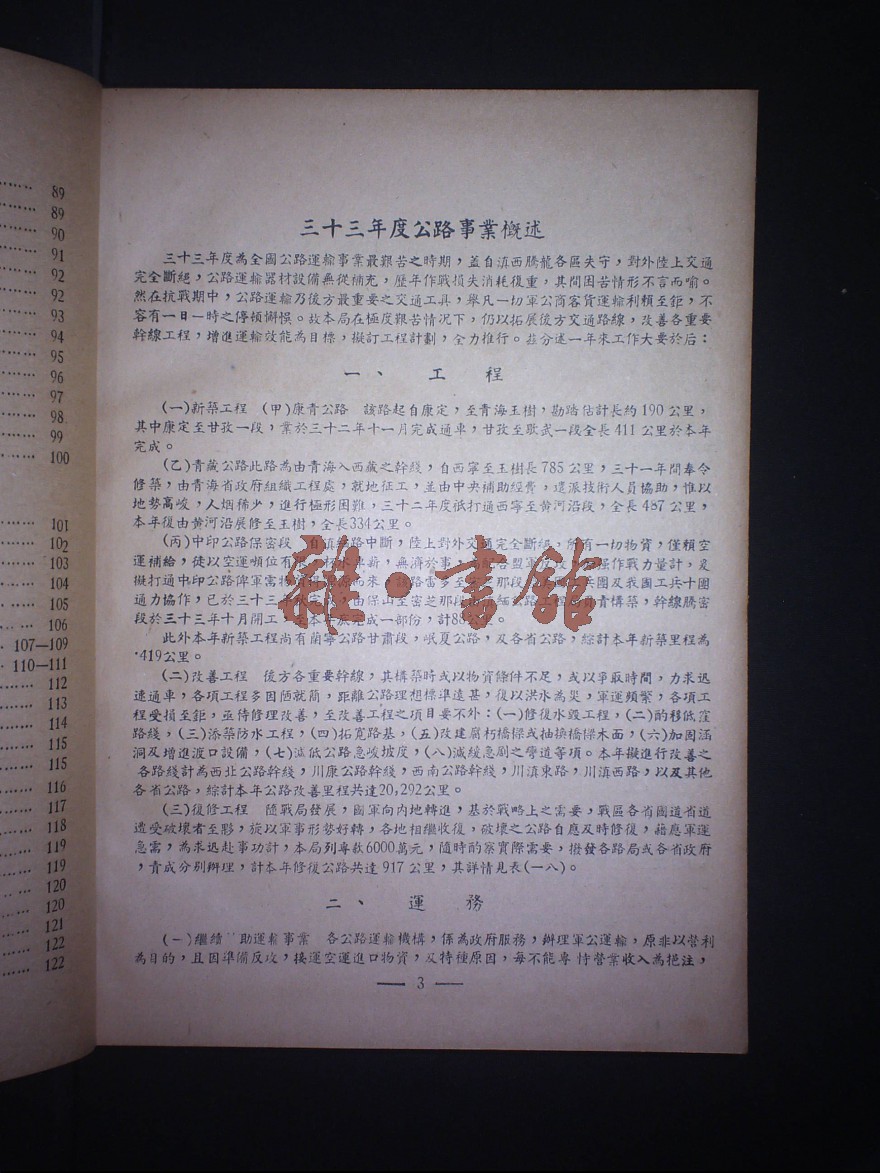 89
89
90
91
92
92
93
94
95
96
97
98
99
100
101
102
103
104
105
106
107—109
110—111
112
113
114
115
115
116
117
118
119
119
120
120
121
122
122
三十三年度公路事業概述
三十三年度為全國公路運輸事業最艱苦之時期,蓋自滇西騰龍各區失守,對外陸上交通
完全斷絕,公路運輸器材設備無從補充,歷年作戰損失消耗復重,其間困苦情形不言而喻。
然在抗戰期中,公路運輸乃後方最重要之交通工具,舉凡一切軍公商客貨運輸利賴至鉅,不
容有一日一時之停頓懈悞。故本局在極度艱苦情況下,仍以拓展後方交通路線,改善各重要
幹線工程,增進運輸效能為目標,擬訂工程計劃,全力推行。茲分述一年來工作大要於后:
一、 工 程
(一)新築工程 (甲)康青公路 該路起自康定,至青海玉樹,勘踏估計長約190公里,
其中康定至甘孜一段,業於三十二年十一月完成通車,甘孜至歇武一段全長411公里於本年
完成。
(乙)青藏公路此路為由青海入西藏之幹綫,自西寧至玉樹長785公里,三十一年間奉令
修築,由青海省政府組織工程處,就地征工,並由中央補助經費,遴派技術人員協助,惟以
地勢高峻,人烟稀少,進行極形困難,三十二年度祇打通西寧至黄河沿段,全長487公里,
本年復由黄河沿展修至玉樹,全長334公里。
(丙)中印公路保密段 自滇緬路中斷,陸上對外交通完全斷絕,所有一切物資,僅賴空
運補給,徒以空運頓位有限,杯水車薪,無濟於事,為配合盟軍反攻,加强作戰力量計,亟
擬打通中印公路俾軍需物資得源源而來,該路雷多至密芝那段由美國工兵團及我國工兵十團
通力協作,已於三十三年秋完成,由保山至密芝那段由滇緬公路工程局負責構築,幹線騰密
段於三十三年十月開工,至本年底完成一部份,計89公里。
此外本年新築工程尚有蘭寧公路甘肅段,岷夏公路,及各省公路,綜計本年新築里程為
419公里。
(二)改善工程 後方各重要幹線,其構築時或以物資條件不足,或以爭取時間,力求迅
速通車,各項工程多因陋就簡,距離公路理想標準遠甚,復以洪水為災,軍運頻繁,各項工
程受損至鉅,亟待修理改善,至改善工程之項目要不外:(一)修復水毀工程,(二)酌移低窪
路綫,(三)添築防水工程,(四)拓寬路基,(五)改建腐朽橋樑或抽換橋樑木面,(六)加固涵
洞及增進渡口設備,(七)減低公路急峻坡度,(八)減緩急劇之彎道等項。本年擬進行改善之
各路綫計為西北公路幹綫,川康公路幹綫,西南公路幹綫,川滇東路,川滇西路,以及其他
各省公路,綜計本年公路改善里程共達20,292公里。
(三)復修工程 隨戰局發展,國軍向內地轉進,基於戰略上之需要,戰區各省國道省道
遭受破壞者至夥,旋以軍事形勢好轉,各地相繼收復,破壞之公路自應及時修復,藉應軍運
急需,為求迅赴事功計,本局列專款6000萬元,隨時酌察實際需要,撥發各路局或各省政府
,責成分別辦理,計本年修復公路共達917公里,其詳情見表(一八)。
二、 運 務
(一)繼續 助運輸事業 各公路運輸機構,係為政府服務,辦理軍公運輸,原非以營利
為目的,且因準備反攻,接運空運進口物資,及特種原因,每不能專恃營業收入為挹注,
— 3 —
雜·書館